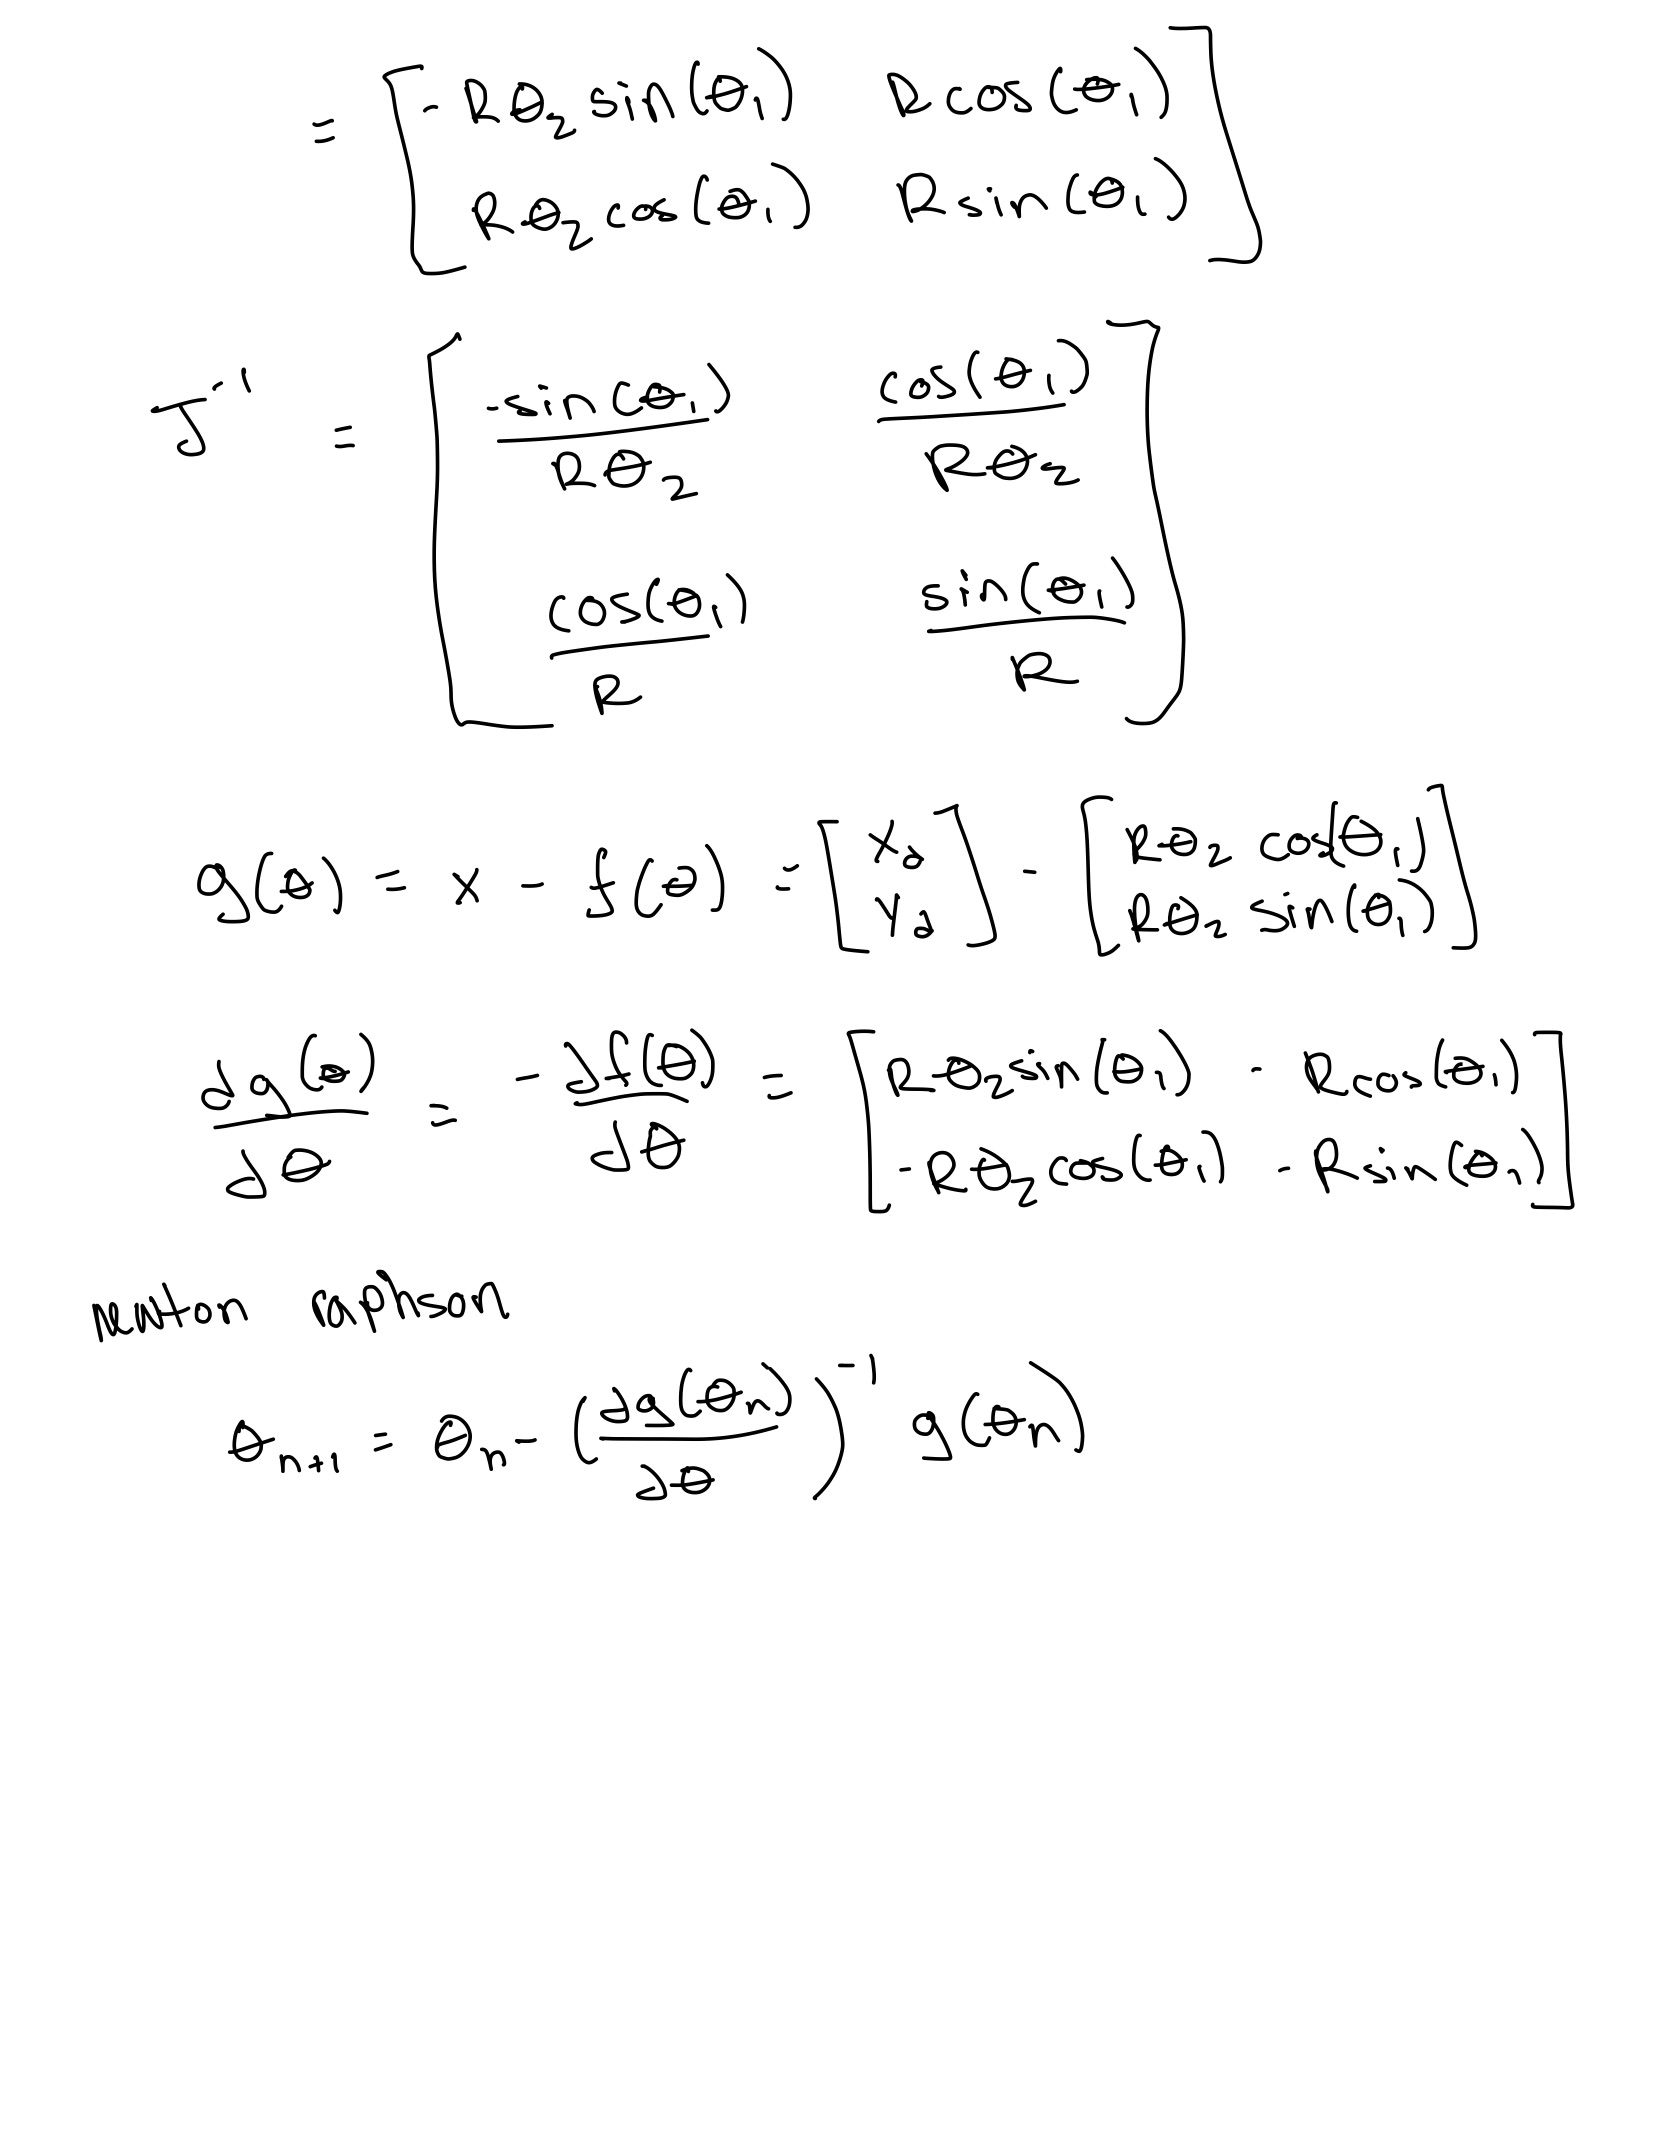 = [ -Rθ₂ sin(θ₁) Rcos(θ₁)
Rθ₂ cos(θ₁) Rsin(θ₁) ]
J⁻¹ = [ -sin(θ₁)/Rθ₂ cos(θ₁)/Rθ₂
cos(θ₁)/R sin(θ₁)/R ]
g(θ) = x - f(θ) = [ x_d y_d ] - [ Rθ₂ cos(θ₁) Rθ₂ sin(θ₁) ]
dg(θ)/dθ = -df(θ)/dθ = [ Rθ₂sin(θ₁) -Rcos(θ₁)
-Rθ₂cos(θ₁) -Rsin(θ₁) ]
newton raphson
θₙ₊₁ = θₙ - (dg(θₙ)/dθ)⁻¹ g(θₙ)